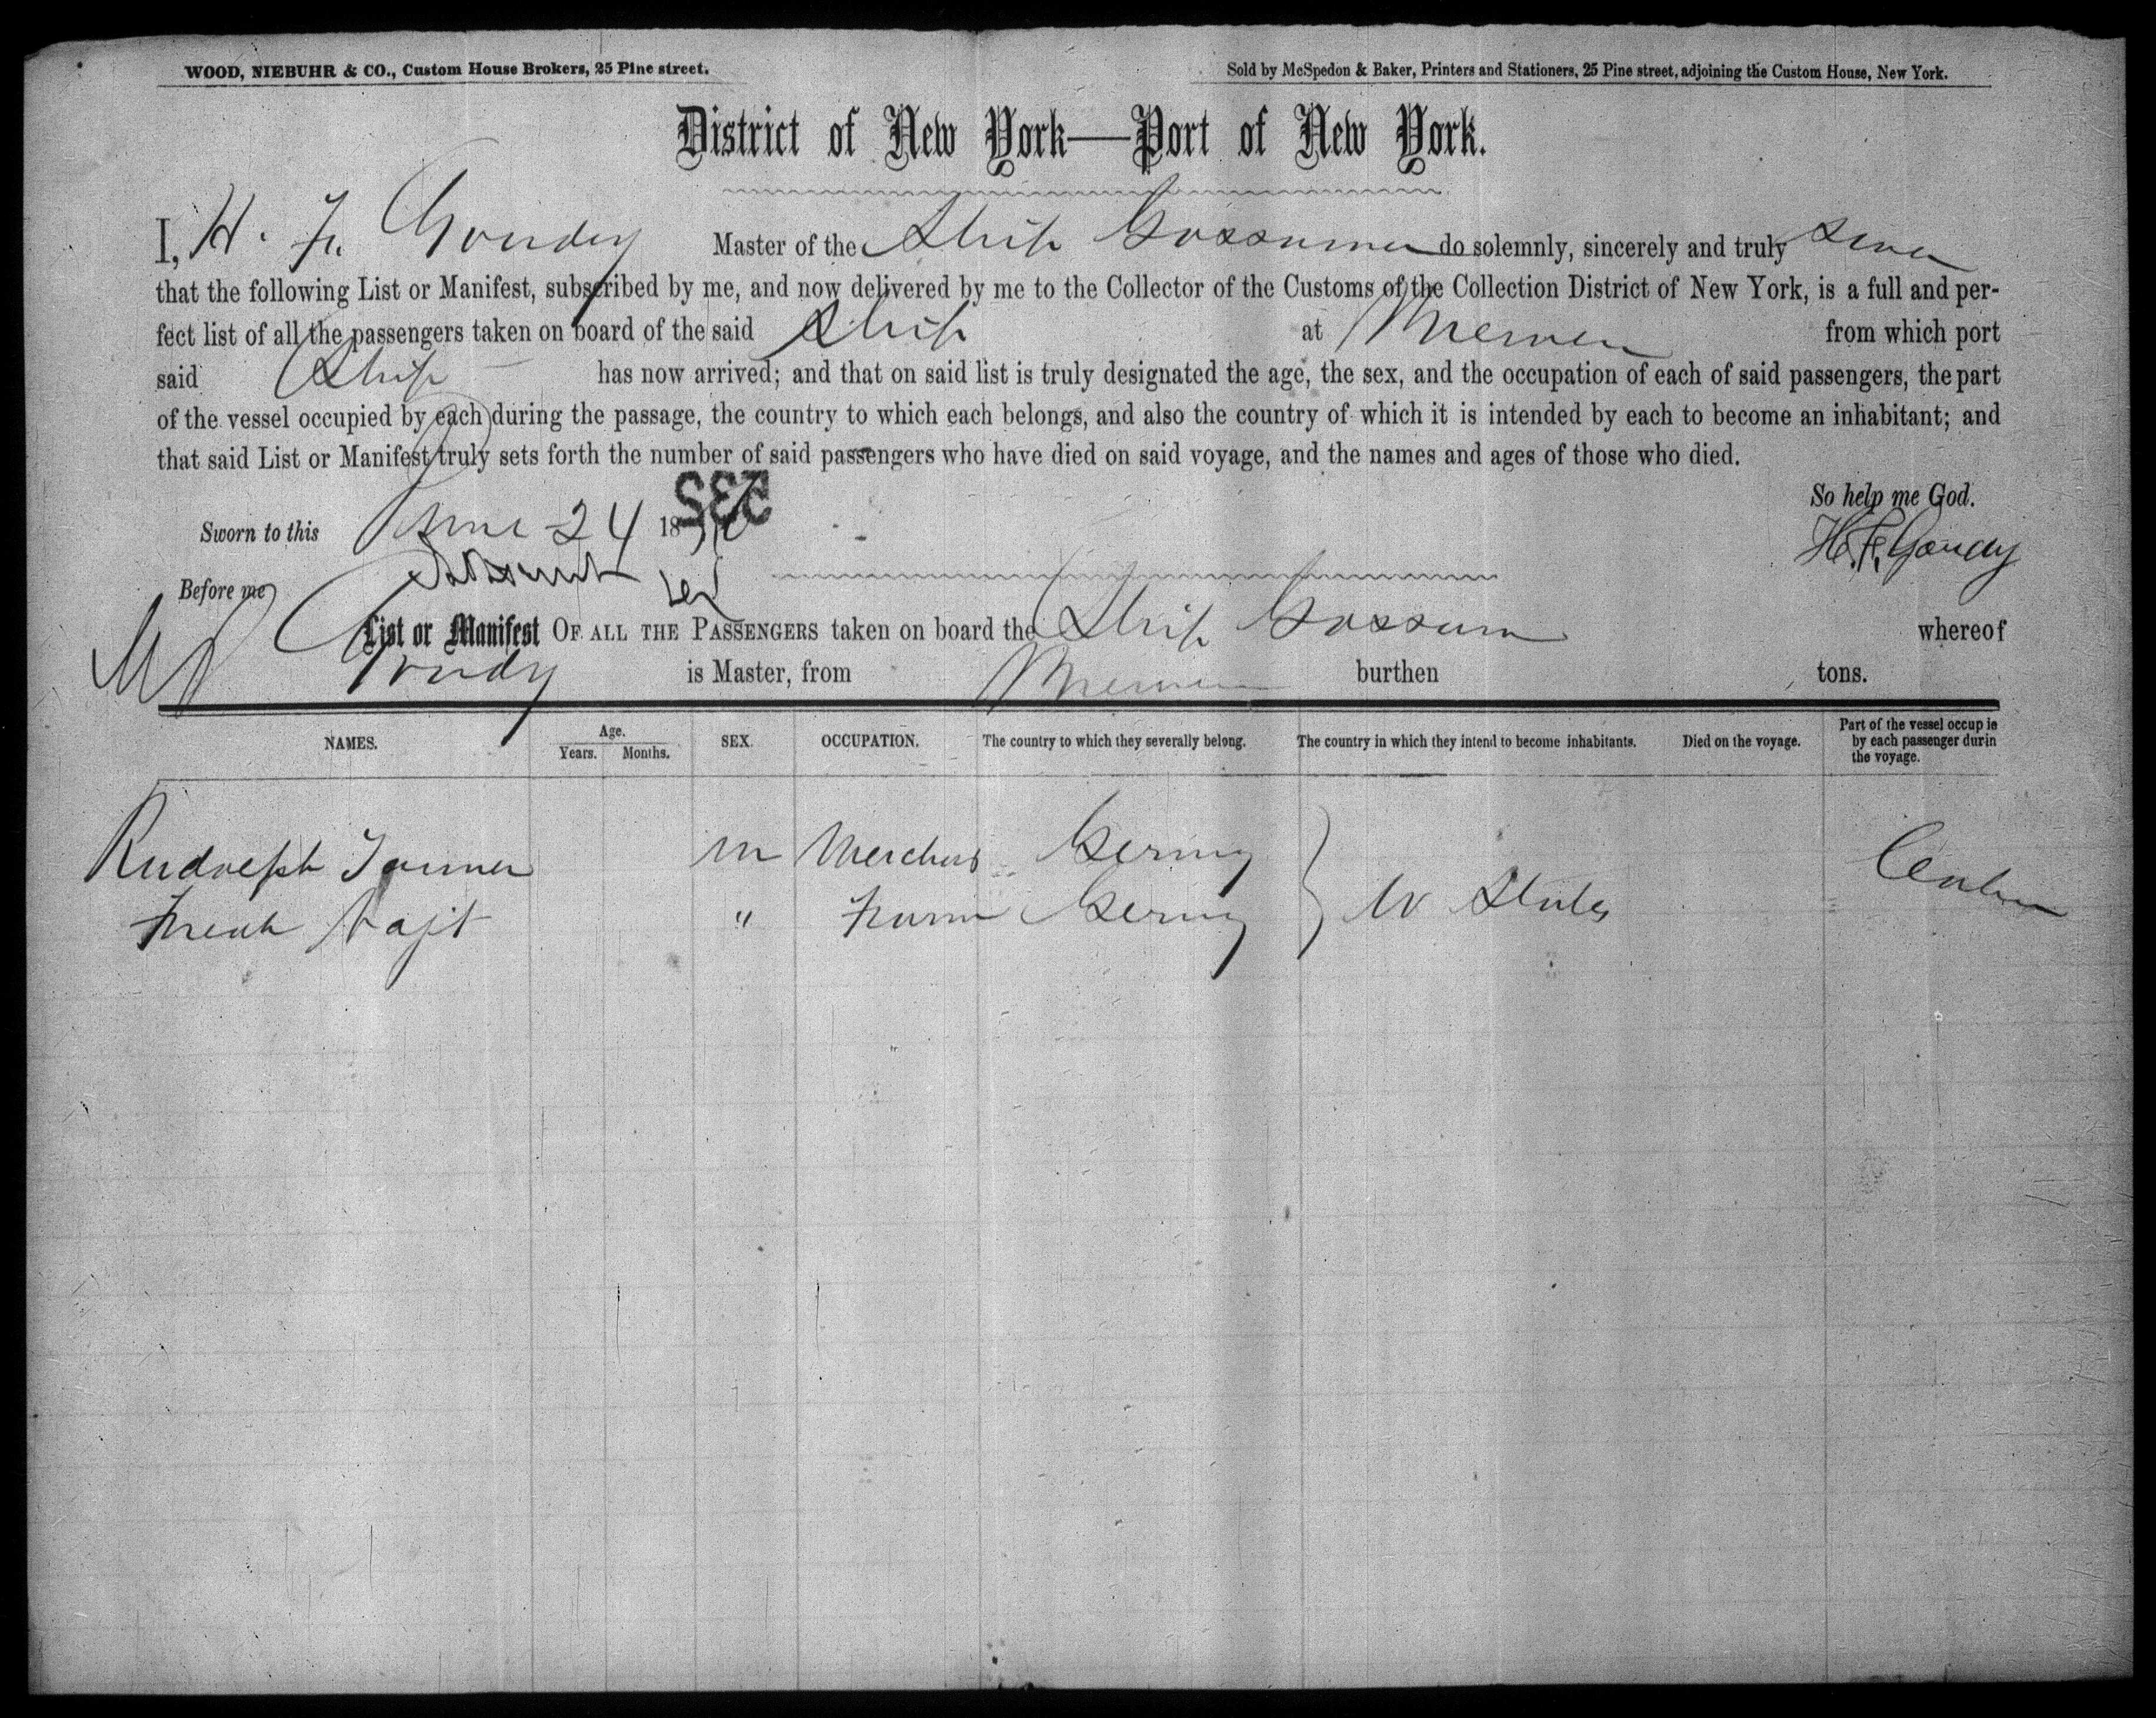 WOOD, NIEBUHR & CO., Custom House Brokers, 25 Pine street.
Sold by McSpedon & Baker, Printers and Stationers, 25 Pine street, adjoining the Custom House, New York.
District of New York—Port of New York.
I, H. F. Goudey Master of the Ship do solemnly, sincerely and truly
that the following List or Manifest, subscribed by me, and now delivered by me to the Collector of the Customs of the Collection District of New York, is a full and per-
fect list of all the passengers taken on board of the said Ship at Bremen from which port
said Ship has now arrived; and that on said list is truly designated the age, the sex, and the occupation of each of said passengers, the part
of the vessel occupied by each during the passage, the country to which each belongs, and also the country of which it is intended by each to become an inhabitant; and
that said List or Manifest truly sets forth the number of said passengers who have died on said voyage, and the names and ages of those who died.
235
So help me God.
Sworn to this June 24 18
H. F. Goudey
Before me
List or Manifest OF ALL THE PASSENGERS taken on board the Ship whereof
Goudy is Master, from Bremen burthen tons.
NAMES. Age. Years. Months. SEX. OCCUPATION. The country to which they severally belong. The country in which they intend to become inhabitants. Died on the voyage. Part of the vessel occup ie by each passenger durin the voyage.
Rudolph m Germy
" Germy States